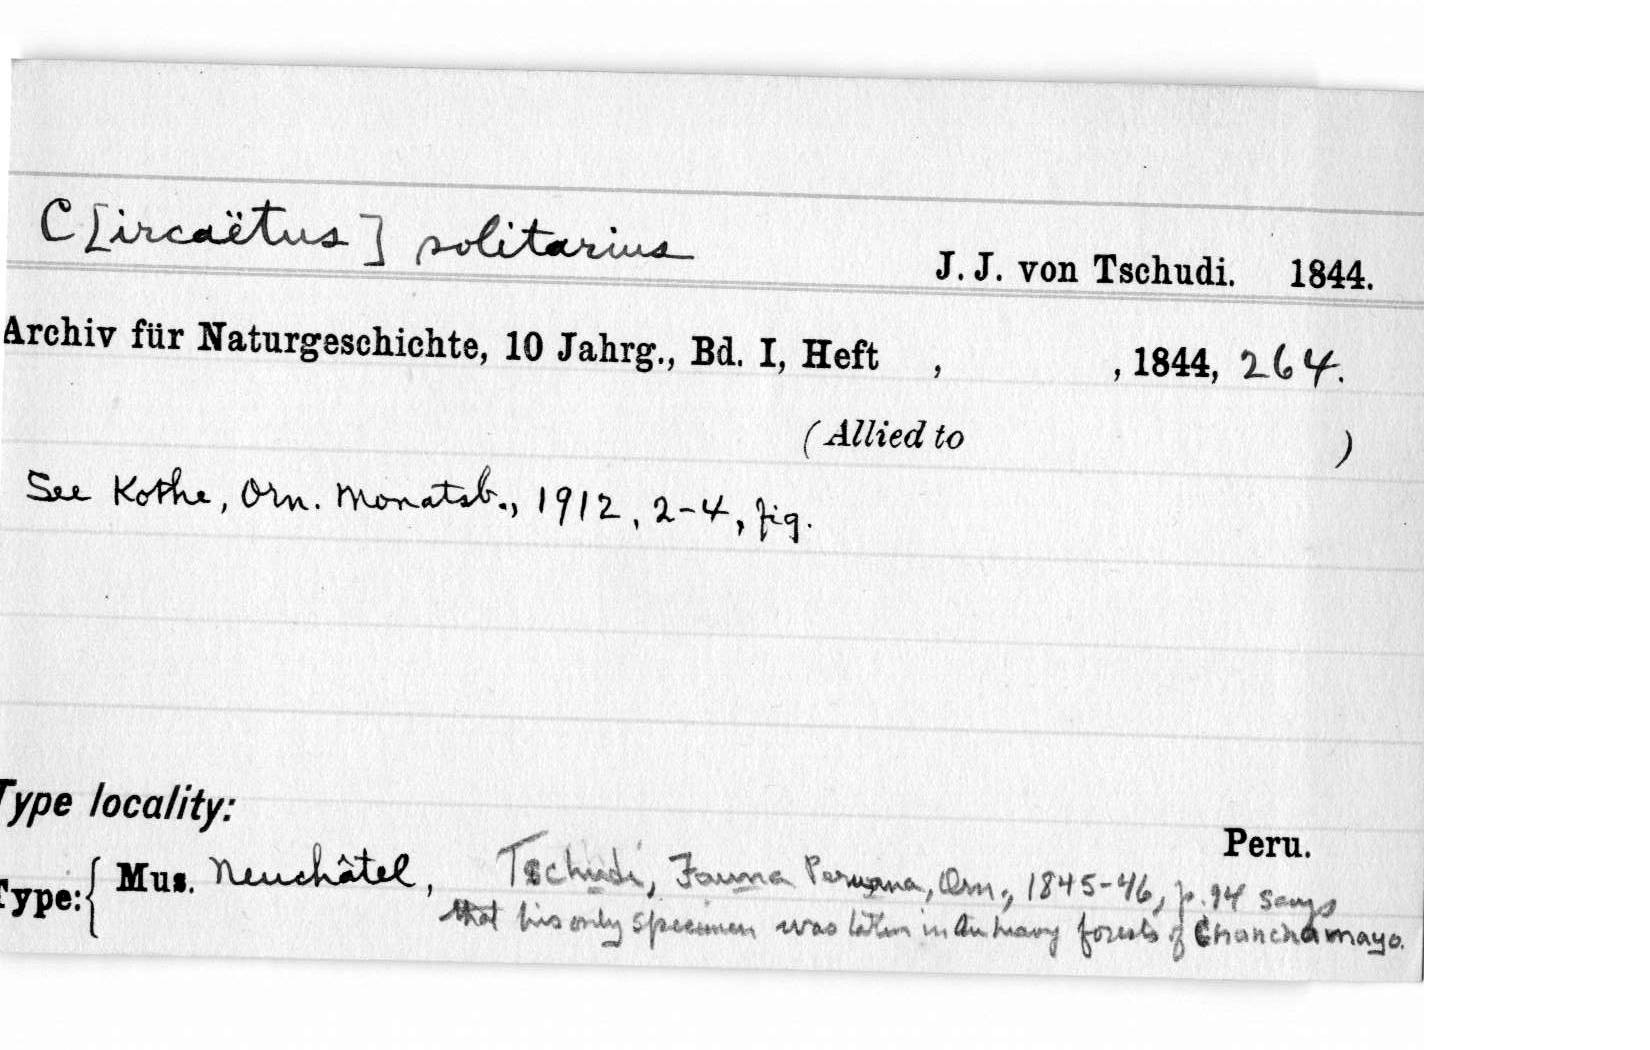 C[ircaëtus] solitarius
J. J. von Tschudi. 1844.
Archiv für Naturgeschichte, 10 Jahrg., Bd. I, Heft , , 1844, 264.
(Allied to )
See Kothe, Orn. Monatsb., 1912, 2-4, fig.
Type locality:
Peru.
Type: { Mus. Neuchâtel, Tschudi, Fauna Peruana, Orn., 1845-46, p. 94 says
that his only specimen was taken in the heavy forests of Chanchamayo.